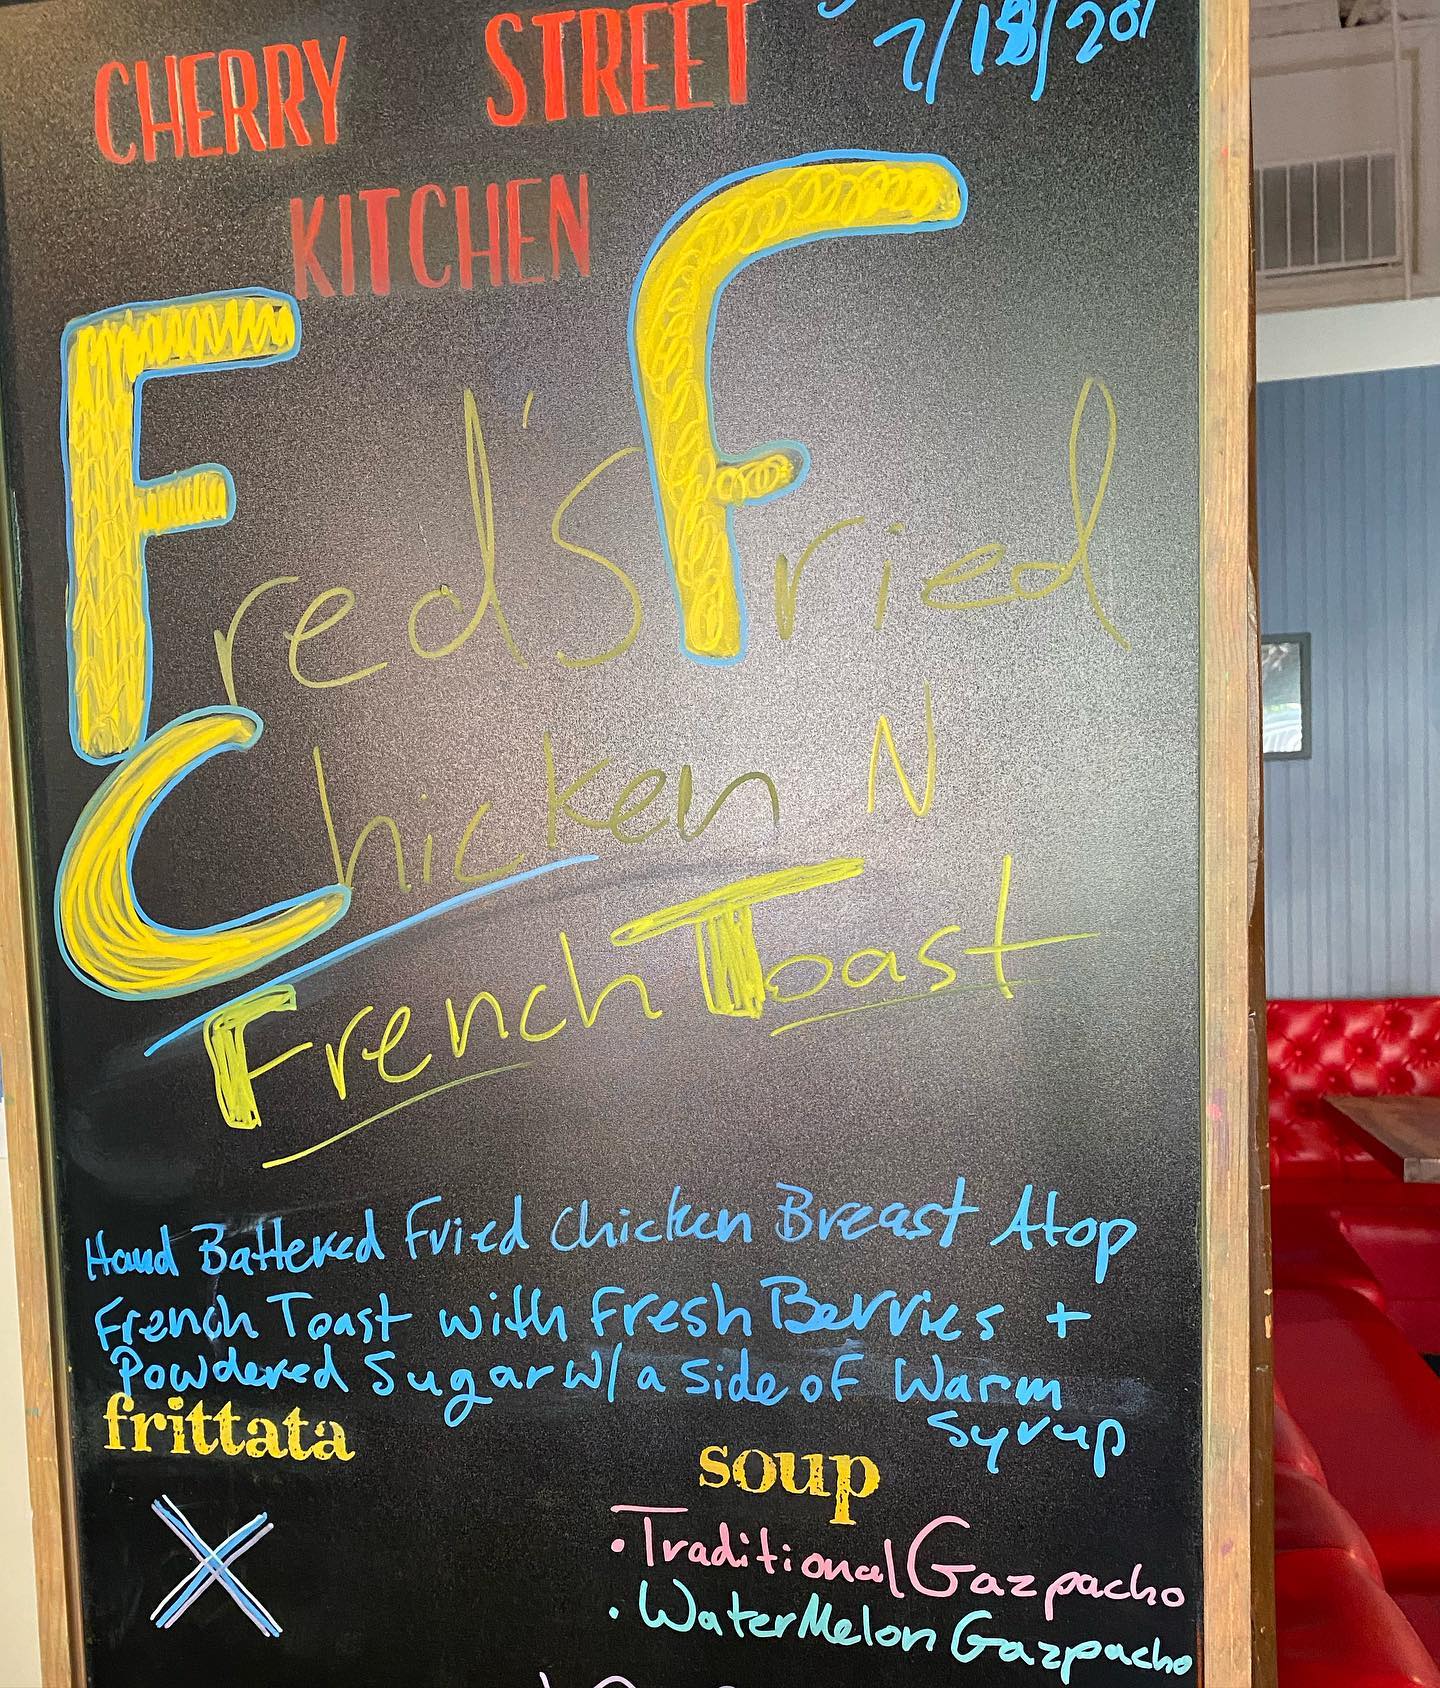 CHERRY STREET
KITCHEN
Fred's Fried
Chicken N
French Toast
Hand Battered Fried Chicken Breast Atop
French Toast with Fresh Berries +
Powdered Sugar w/ a side of Warm
Syrup
frittata
soup
• Traditional Gazpacho
• WaterMelon Gazpacho